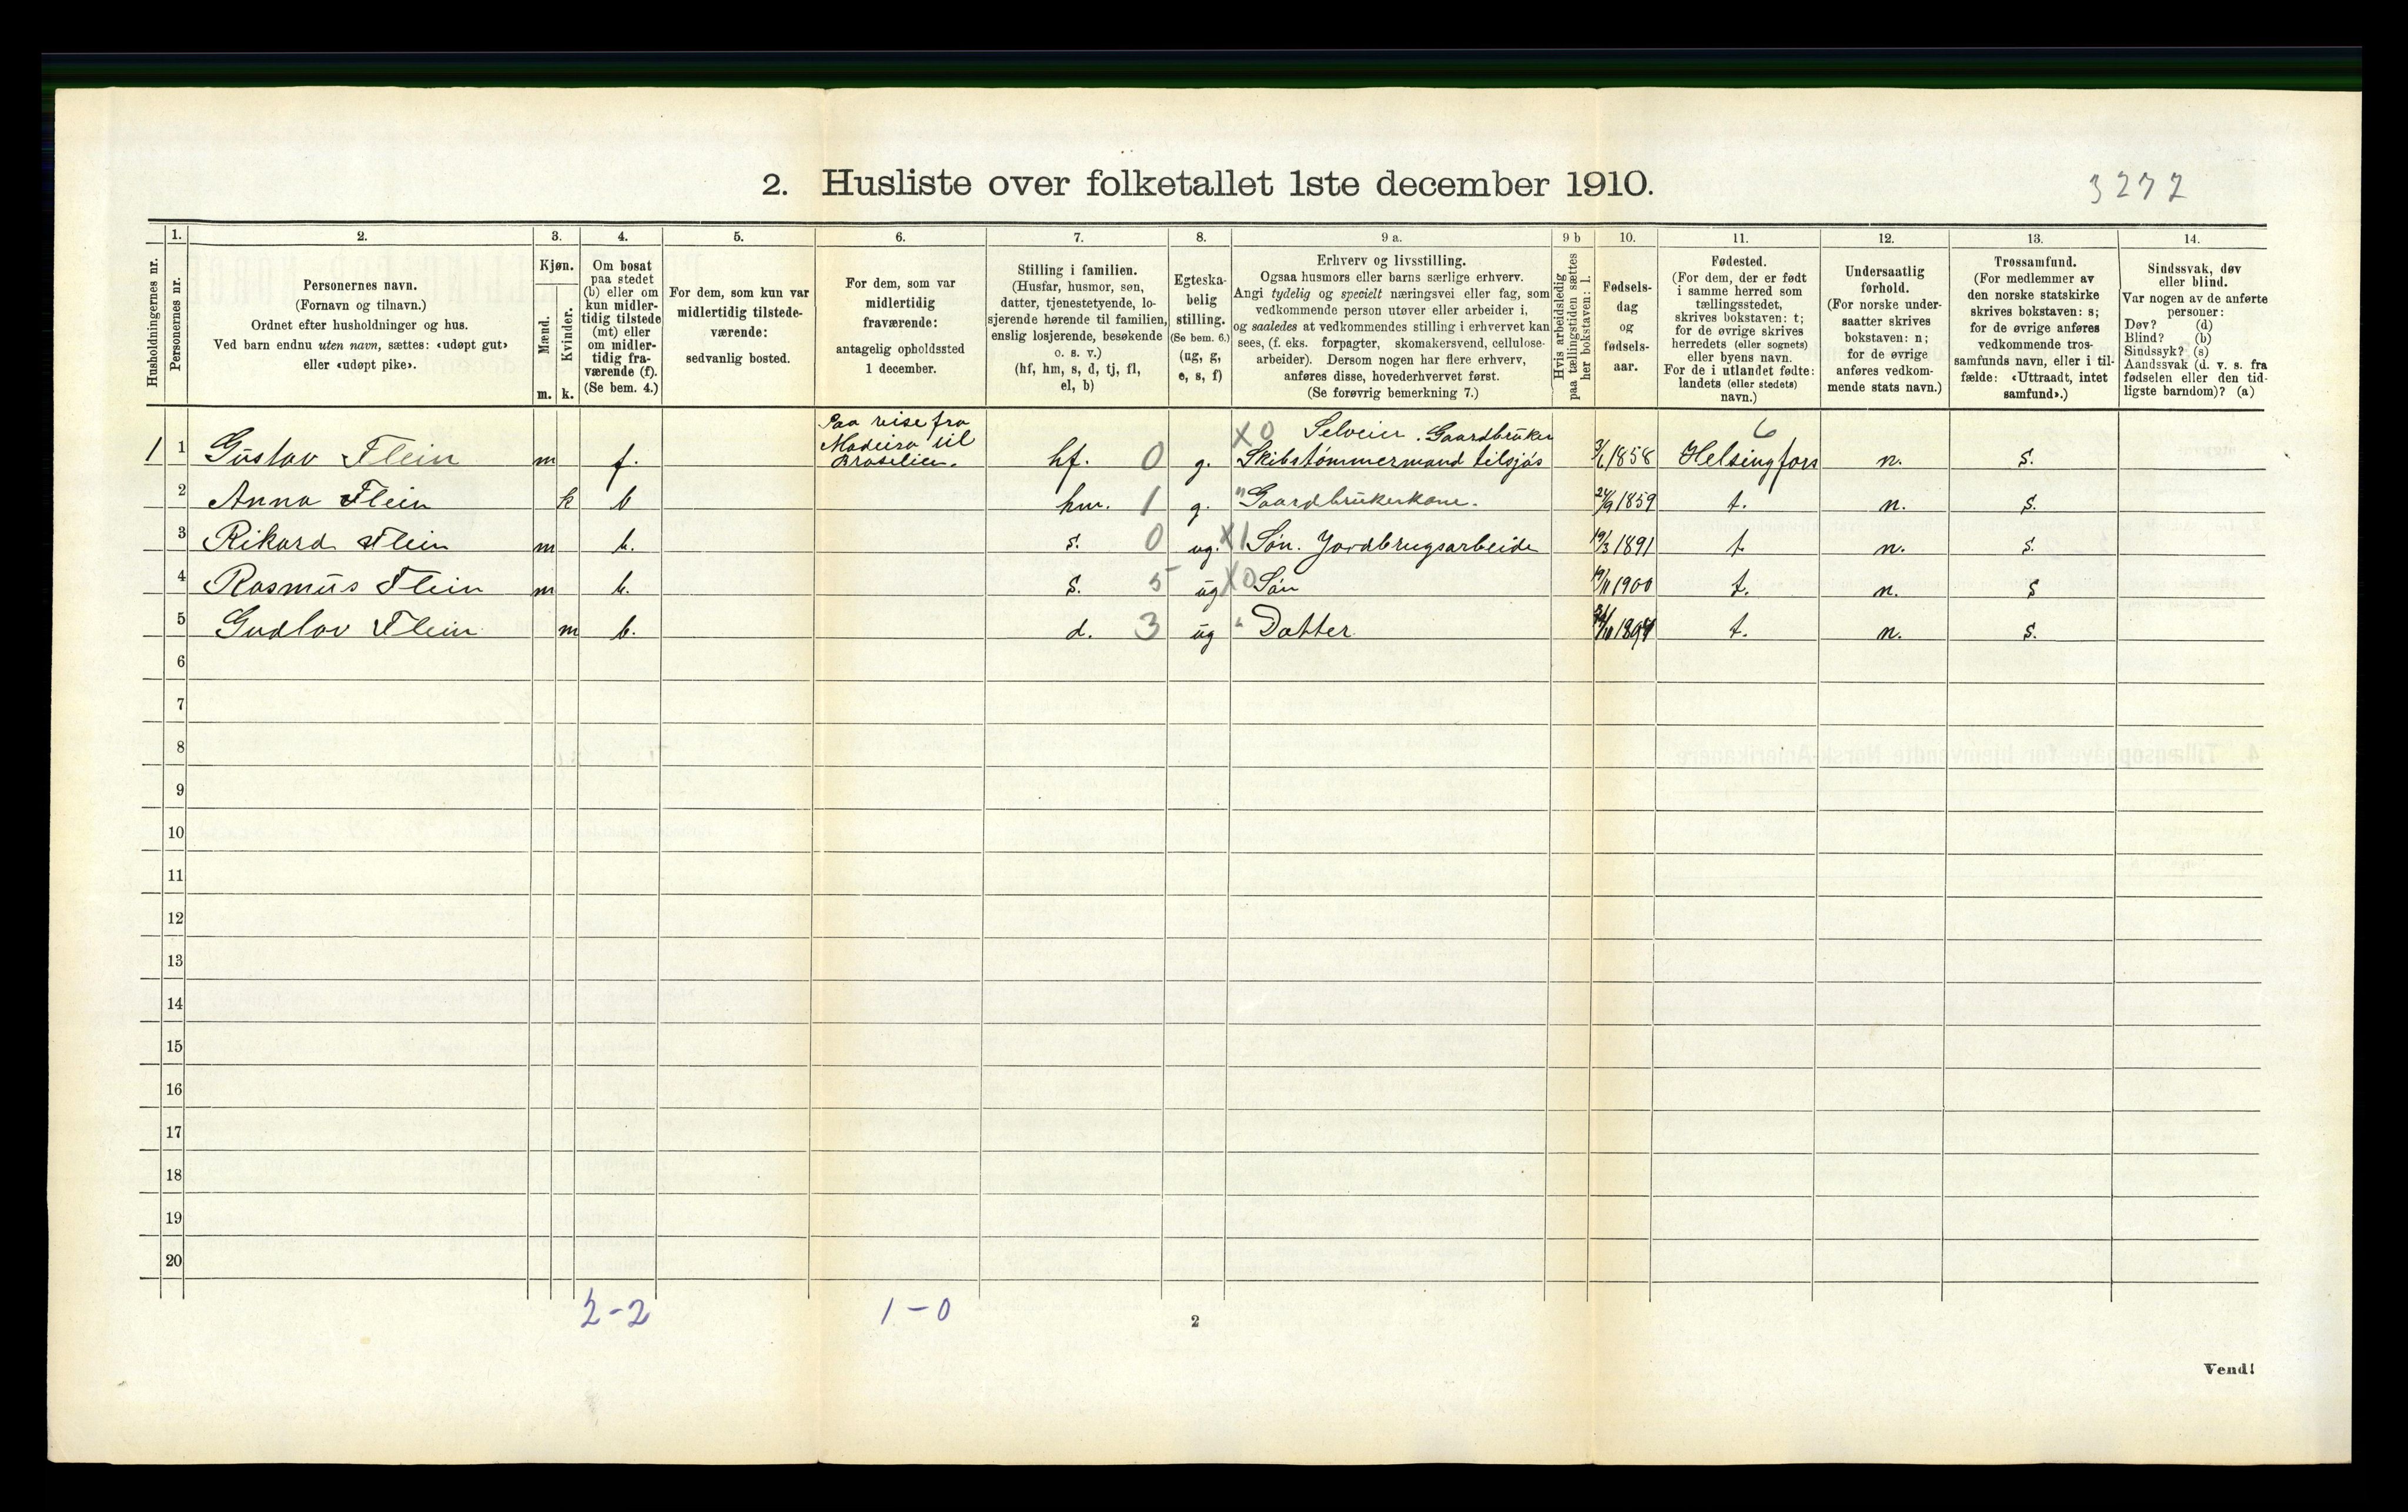 2. Husliste over folketallet 1ste december 1910.
3272
Husholdningernes nr.
1.
Personernes nr.
2.
Personernes navn.
(Fornavn og tilnavn.)
Ordnet efter husholdninger og hus.
Ved barn endnu uten navn, sættes: «udøpt gut»
eller «udøpt pike».
3.
Kjøn.
Mænd.
Kvinder.
m.
k.
4.
Om bosat
paa stedet
(b) eller om
kun midler-
tidig tilstede
(mt) eller
om midler-
tidig fra-
værende (f).
(Se bem. 4.)
5.
For dem, som kun var
midlertidig tilstede-
værende:
sedvanlig bosted.
6.
For dem, som var
midlertidig
fraværende:
antagelig opholdssted
1 december.
7.
Stilling i familien.
(Husfar, husmor, søn,
datter, tjenestetyende, lo-
sjerende hørende til familien,
enslig losjerende, besøkende
o. s. v.)
(hf, hm, s, d, tj, fl,
el, b)
8.
Egteska-
belig
stilling.
(Se bem. 6.)
(ug, g,
e, s, f)
9 a.
Erhverv og livsstilling.
Ogsaa husmors eller barns særlige erhverv.
Angi tydelig og specielt næringsvei eller fag, som
vedkommende person utøver eller arbeider i,
og saaledes at vedkommendes stilling i erhvervet kan
sees, (f. eks. forpagter, skomakersvend, cellulose-
arbeider). Dersom nogen har flere erhverv,
anføres disse, hovederhvervet først.
(Se forøvrig bemerkning 7.)
9 b
Hvis arbeidsledig
paa tællingstiden sættes
her bokstaven: l.
10.
Fødsels-
dag
og
fødsels-
aar.
11.
Fødested.
(For dem, der er født
i samme herred som
tællingsstedet,
skrives bokstaven: t;
for de øvrige skrives
herredets (eller sognets)
eller byens navn.
For de i utlandet fødte:
landets (eller stedets)
navn.)
12.
Undersaatlig
forhold.
(For norske under-
saatter skrives
bokstaven: n;
for de øvrige
anføres vedkom-
mende stats navn.)
13.
Trossamfund.
(For medlemmer av
den norske statskirke
skrives bokstaven: s;
for de øvrige anføres
vedkommende tros-
samfunds navn, eller i til-
fælde: «Uttraadt, intet
samfund».)
14.
Sindssvak, døv
eller blind.
Var nogen av de anførte
personer:
Døv? (d)
Blind? (b)
Sindssyk? (s)
Aandssvak (d. v. s. fra
fødselen eller den tid-
ligste barndom)? (a)
Paa reise fra
Madeira til
Brasilien.
X0 Selveier . Gaardbruker
6
1 1 Gustav Flein m f. hf. 0 g. Skibstømmermand tilsjøs 3/6 1858 Helsingfors n. s.
2 Anna Flein k b hm. 1 g. " Gaardbrukerkone. 24/9 1859 t. n. s.
3 Rikard Flein m b. s. 0 ug. X1 Søn. Jordbrugsarbeide 19/3 1891 t. n. s.
4 Rasmus Flein m b. s. 5 ug X0 Søn 19/11 1900 t. n. s
5 Gudlov Flein m b. d. 3 ug " Datter t. n. s.
6
7
8
9
10
11
12
13
14
15
16
17
18
19
20
2-2 1-0
2
Vend!